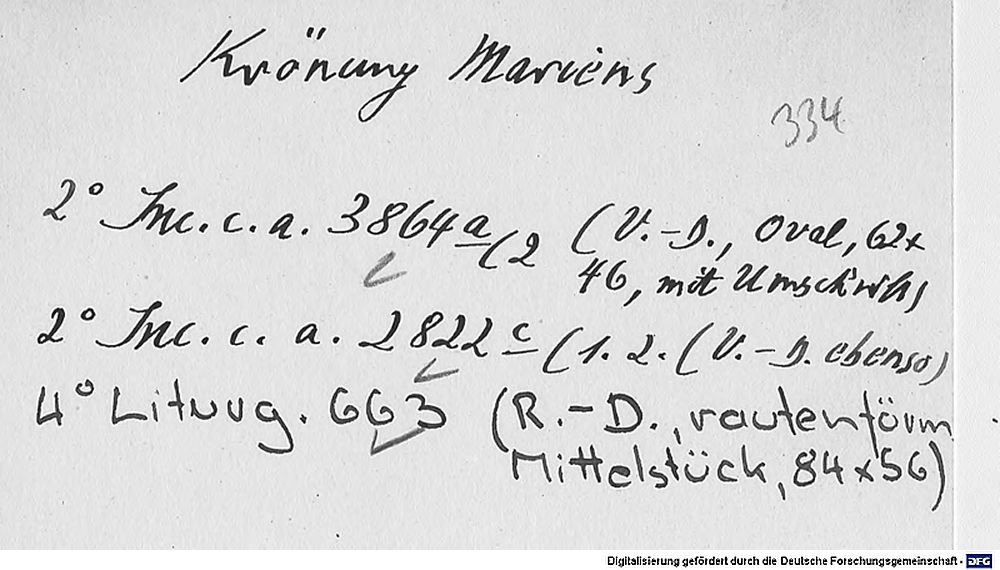 Krönung Mariens
334
2° Inc. c. a. 3864 a (2 (V.-D., Oval, 62x
46, mit Umschrift)
2° Inc. c. a. 2822 c (1. 2. (V.-D. ebenso)
4° Liturg. 663 (R.-D., rautenförm
Mittelstück, 84x56)
Digitalisierung gefördert durch die Deutsche Forschungsgemeinschaft - DFG